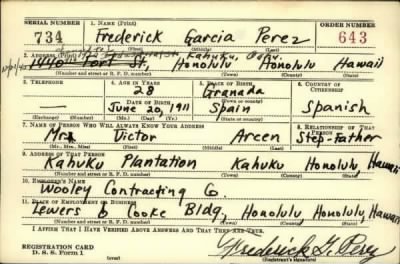 SERIAL NUMBER 1. NAME (Print) ORDER NUMBER
734 Frederick Garcia Perez 643
(First) (Middle) (Last)
2. ADDRESS (Print) Kahuku, Oahu
1440 Fort St, Honolulu Honolulu Hawaii
(Number and street or R. F. D. number) (Town) (County) (State)
3. TELEPHONE 4. AGE IN YEARS 5. PLACE OF BIRTH 6. COUNTRY OF CITIZENSHIP
28 Granada
DATE OF BIRTH (Town or county)
— June 20, 1911 Spain Spanish
(Mo.) (Day) (Yr.) (State or country)
7. NAME OF PERSON WHO WILL ALWAYS KNOW YOUR ADDRESS 8. RELATIONSHIP OF THAT PERSON
Mr. Victor Arcen Step-father
(Mr., Mrs., Miss) (First) (Middle) (Last)
9. ADDRESS OF THAT PERSON
Kahuku Plantation Kahuku Honolulu, Hawaii
(Number and street or R. F. D. number) (Town) (County) (State)
10. EMPLOYER'S NAME
Wooley Contracting Co.
11. PLACE OF EMPLOYMENT OR BUSINESS
Lewers & Cooke Bldg. Honolulu, Honolulu, Hawaii
(Number and street or R. F. D. number) (Town) (County) (State)
I AFFIRM THAT I HAVE VERIFIED ABOVE ANSWERS AND THAT THEY ARE TRUE.
REGISTRATION CARD
D. S. S. Form 1 Frederick G. Perez
(over) (Registrant's signature)